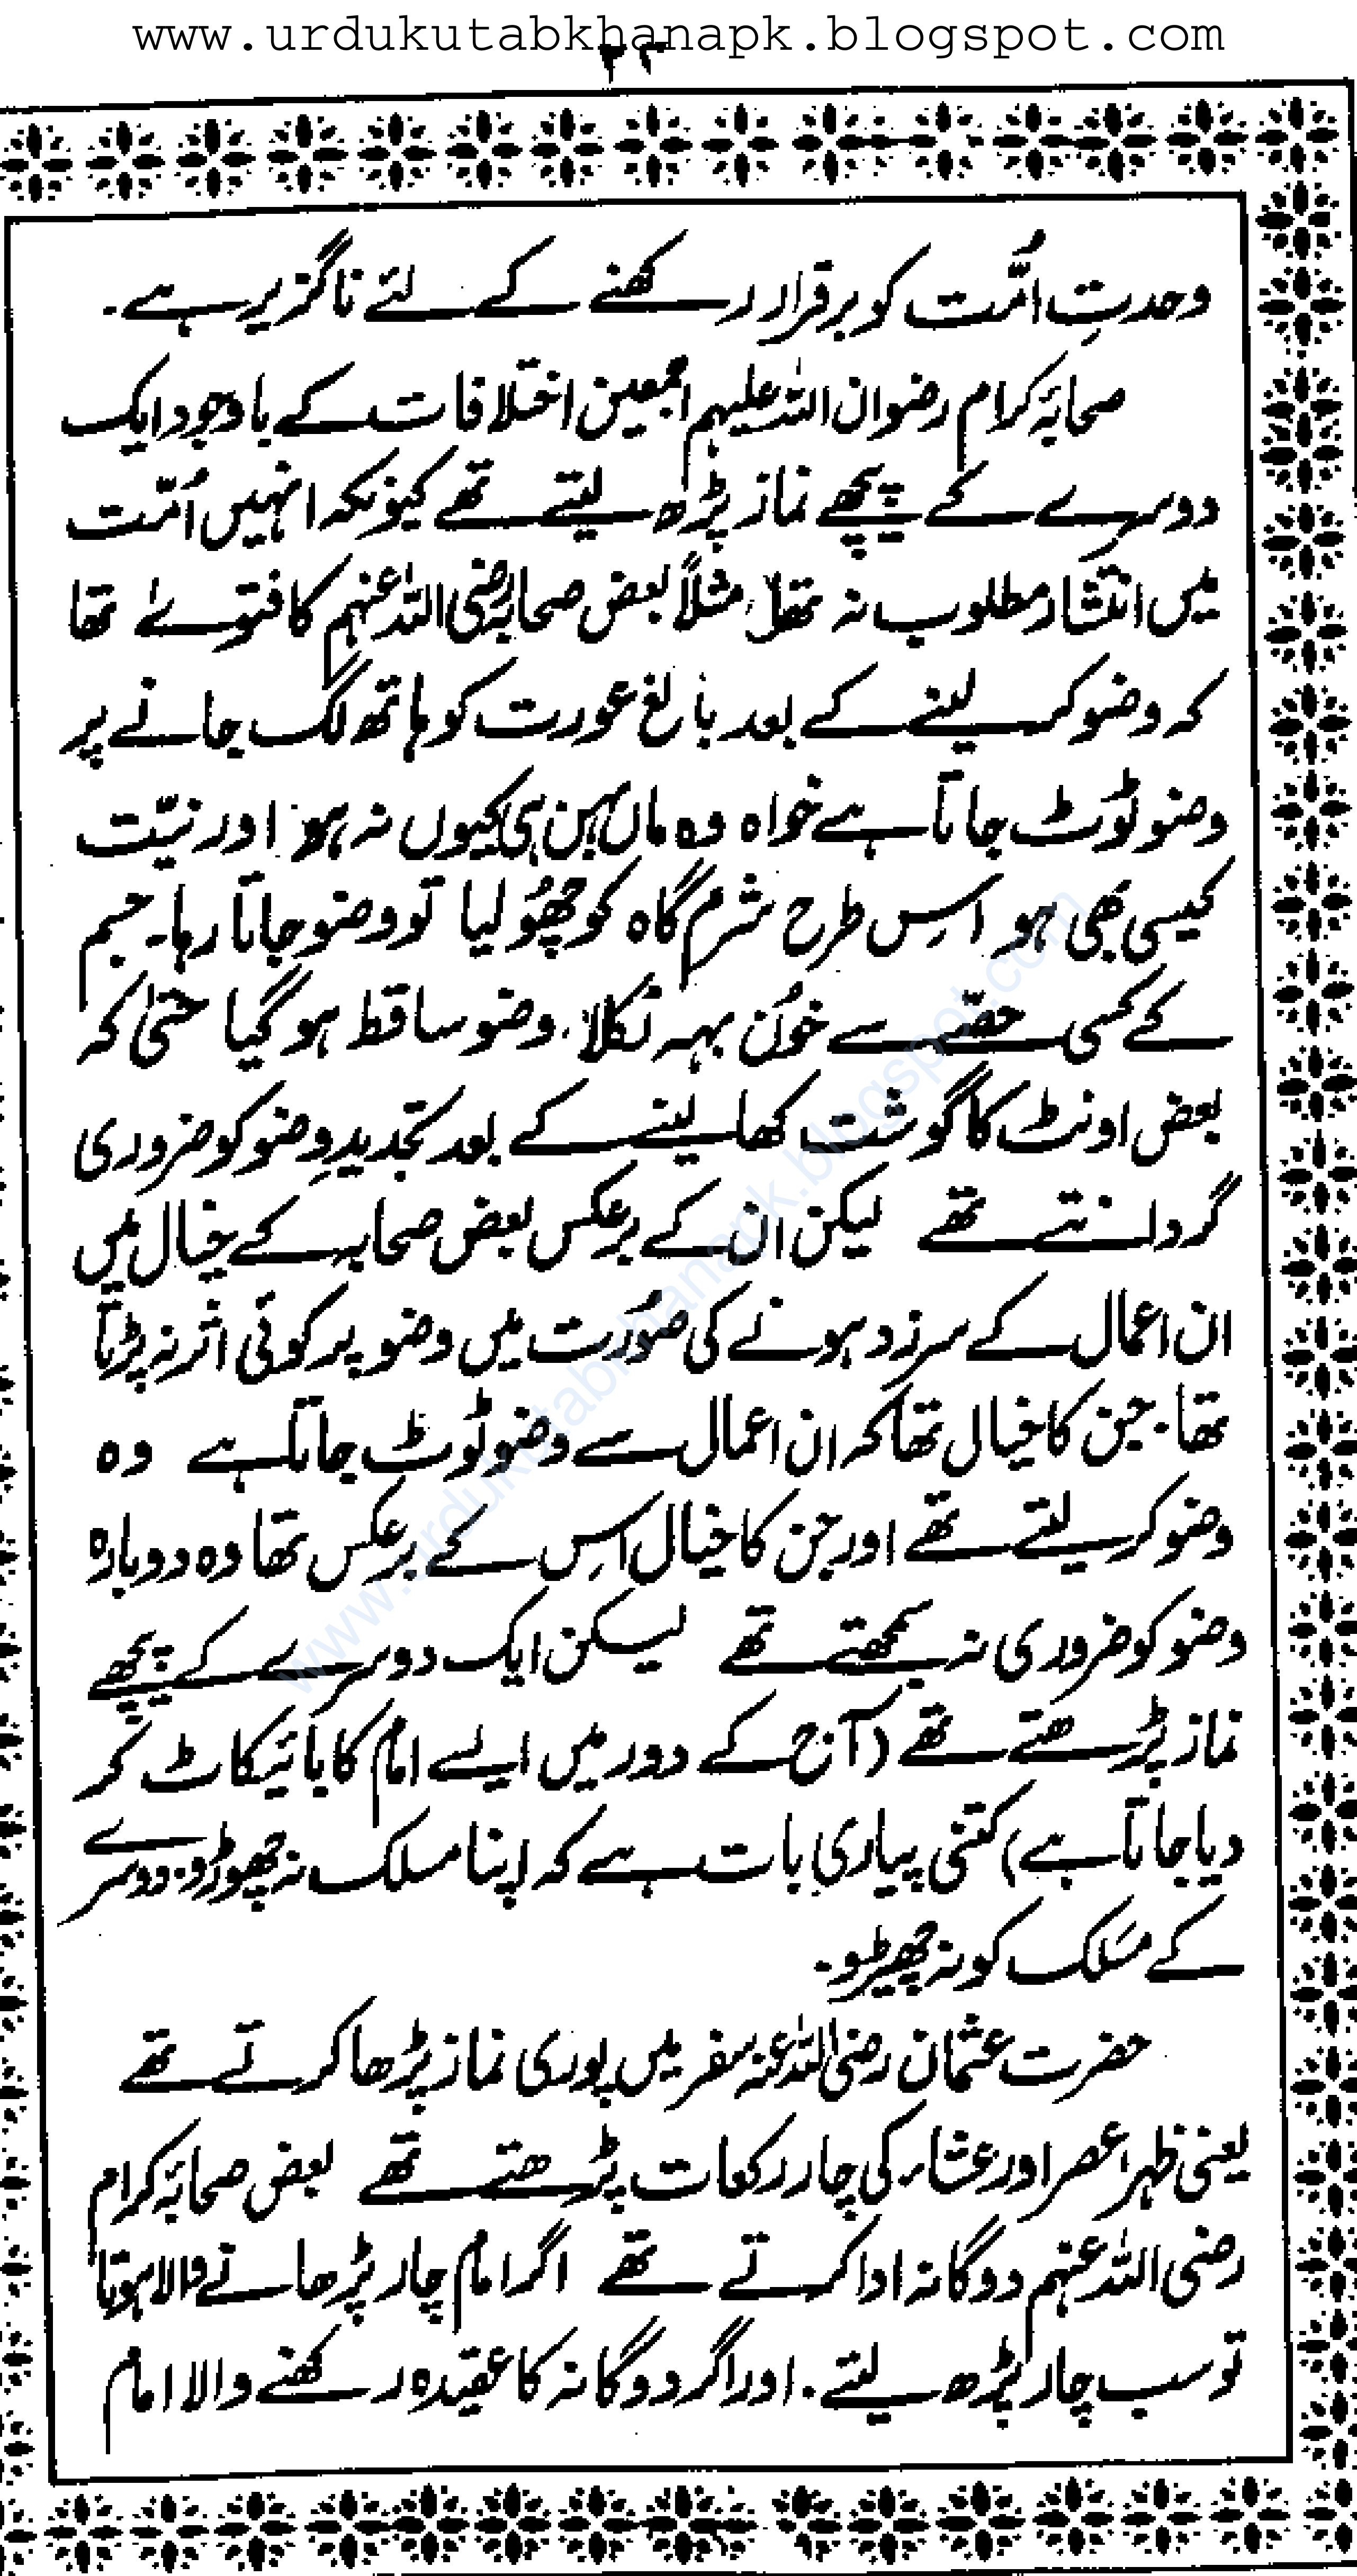 www.urdukutabkhanapk.blogspot.com
۲۲
وحدتِ اُمّت کو برقرار رکھنے کے لئے ناگزیر ہے۔
صحابۂ کرام رضوان اللہ علیہم اجمعین اختلافات کے باوجود ایک
دوسرے کے پیچھے نماز پڑھ لیتے تھے کیونکہ انہیں اُمّت
میں انتشار مطلوب نہ تھا، مثلاً بعض صحابہ رضی اللہ عنہم کا فتوےٰ تھا
کہ وضو کر لینے کے بعد بالغ عورت کو ہاتھ لگ جانے پر
وضو ٹوُٹ جاتا ہے خواہ وہ ماں بہن ہی کیوں نہ ہو اور نیّت
کیسی بھی ہو اسِ طرح شرم گاہ کو چھوُ لیا تو وضو جاتا رہا۔ جسم
کے کسی حصّے سے خوُن بہہ نکلا، وضو ساقط ہو گیا حتیٰ کہ
بعض اونٹ کا گوشت کھا لینے کے بعد تجدیدِ وضو کو ضروری
گردانتے تھے لیکن ان کے برعکس بعض صحابہ کے خیال میں
ان اعمال کے سرزد ہونے کی صوُرت میں وضو پر کوئی اثر نہ پڑتا
تھا۔ جن کا خیال تھا کہ ان اعمال سے وضو ٹوُٹ جاتا ہے وہ
وضو کر لیتے تھے اور جن کا خیال اسِ کے برعکس تھا وہ دوبارہ
وضو کو ضروری نہ سمجھتے تھے لیکن ایک دوسرے کے پیچھے
نماز پڑھتے تھے (آج کے دور میں ایسے امام کا بائیکاٹ کر
دیا جاتا ہے) کتنی پیاری بات ہے کہ اپنا مسلک نہ چھوڑو۔ دوسرے
کے مسَلک کو نہ چھیڑو۔
حضرت عثمان رضی اللہ عنہ سفر میں پوری نماز پڑھا کرتے تھے
یعنی ظہر اعصر اور عشاء کی چار رکعات پڑھتے تھے بعض صحابۂ کرام
رضی اللہ عنہم دوگانہ ادا کرتے تھے اگر امام چار پڑھانے والا ہوتا
تو سب چار پڑھ لیتے۔ اور اگر دوگانہ کا عقیدہ رکھنے والا امام
www.urdukutabkhanapk.blogspot.com